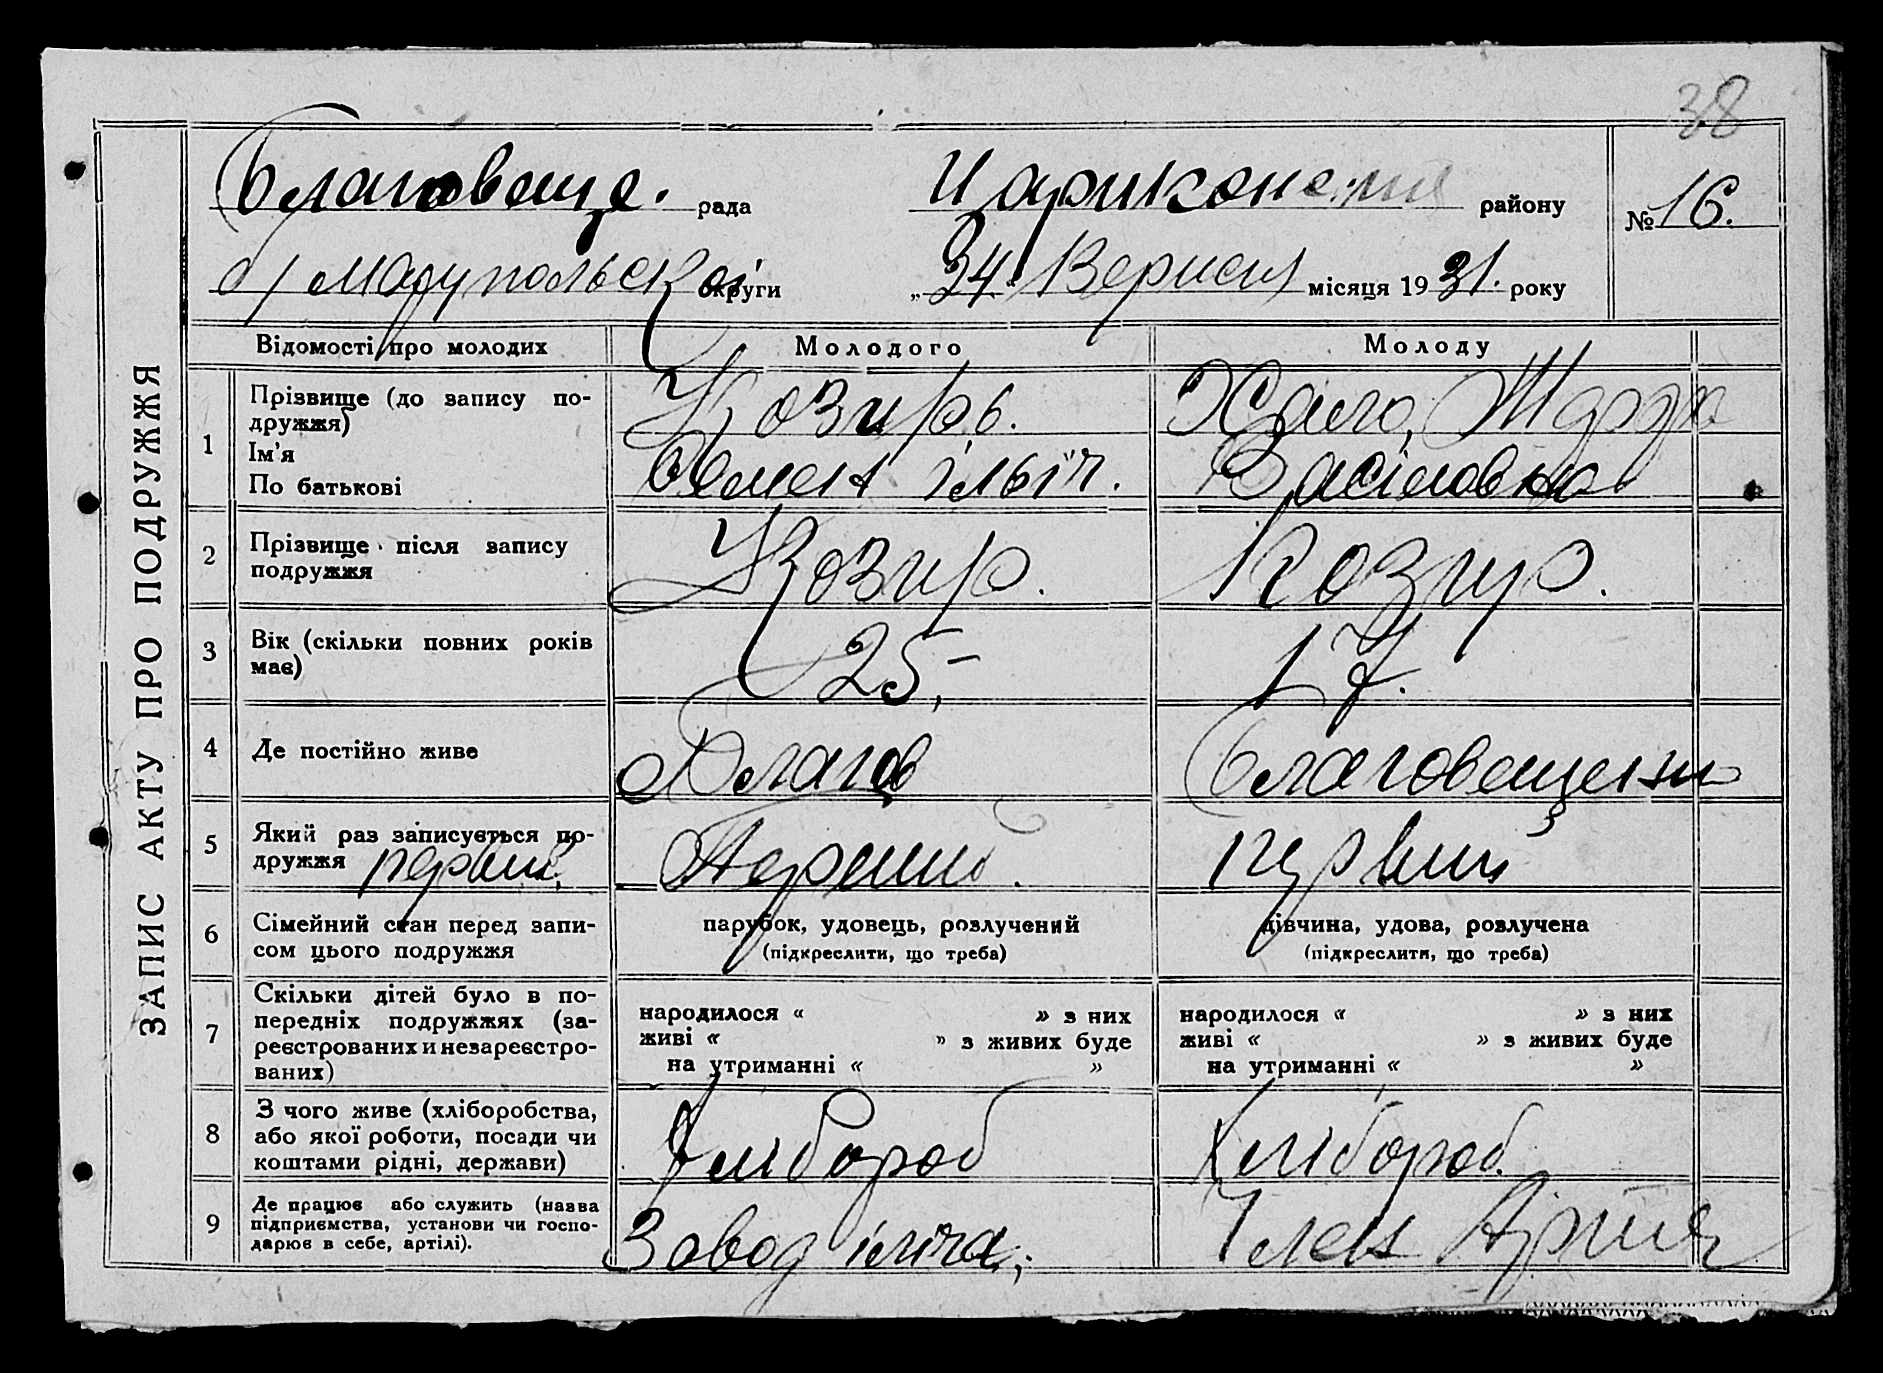 38
ЗАПИС АКТУ ПРО ПОДРУЖЖЯ
Благовеще. рада
району
№ 16.
б/ Маріупольської округи
„24“ Вересня місяця 1931. року
Відомості про молодих
Молодого
Молоду
1
Прізвище (до запису по-
дружжя)
Ім'я
По батькові
Козирь.
Семен ільіч.
Хало,
2
Прізвище після запису
подружжя
Козир.
Козир.
3
Вік (скільки повних років
має)
25,-
17.
4
Де постійно живе
Благов
Благовещенки
5
Який раз записується по-
дружжя первий
Перший.
первий
6
Сімейний стан перед запи-
сом цього подружжя
парубок, удовець, розлучений
(підкреслити, що треба)
дівчина, удова, розлучена
(підкреслити, що треба)
7
Скільки дітей було в по-
передніх подружжях (за-
реєстрованих и незареєстро-
ваних)
народилося « » з них
живі « » з живих буде
на утриманні « »
народилося « » з них
живі « » з живих буде
на утриманні « »
8
З чого живе (хліборобства,
або якої роботи, посади чи
коштами рідні, держави)
Хлібороб
Хлібороб.
9
Де працює або служить (назва
підприємства, установи чи госпо-
дарює в себе, артілі).
Завод іліча,;
Член Артіля